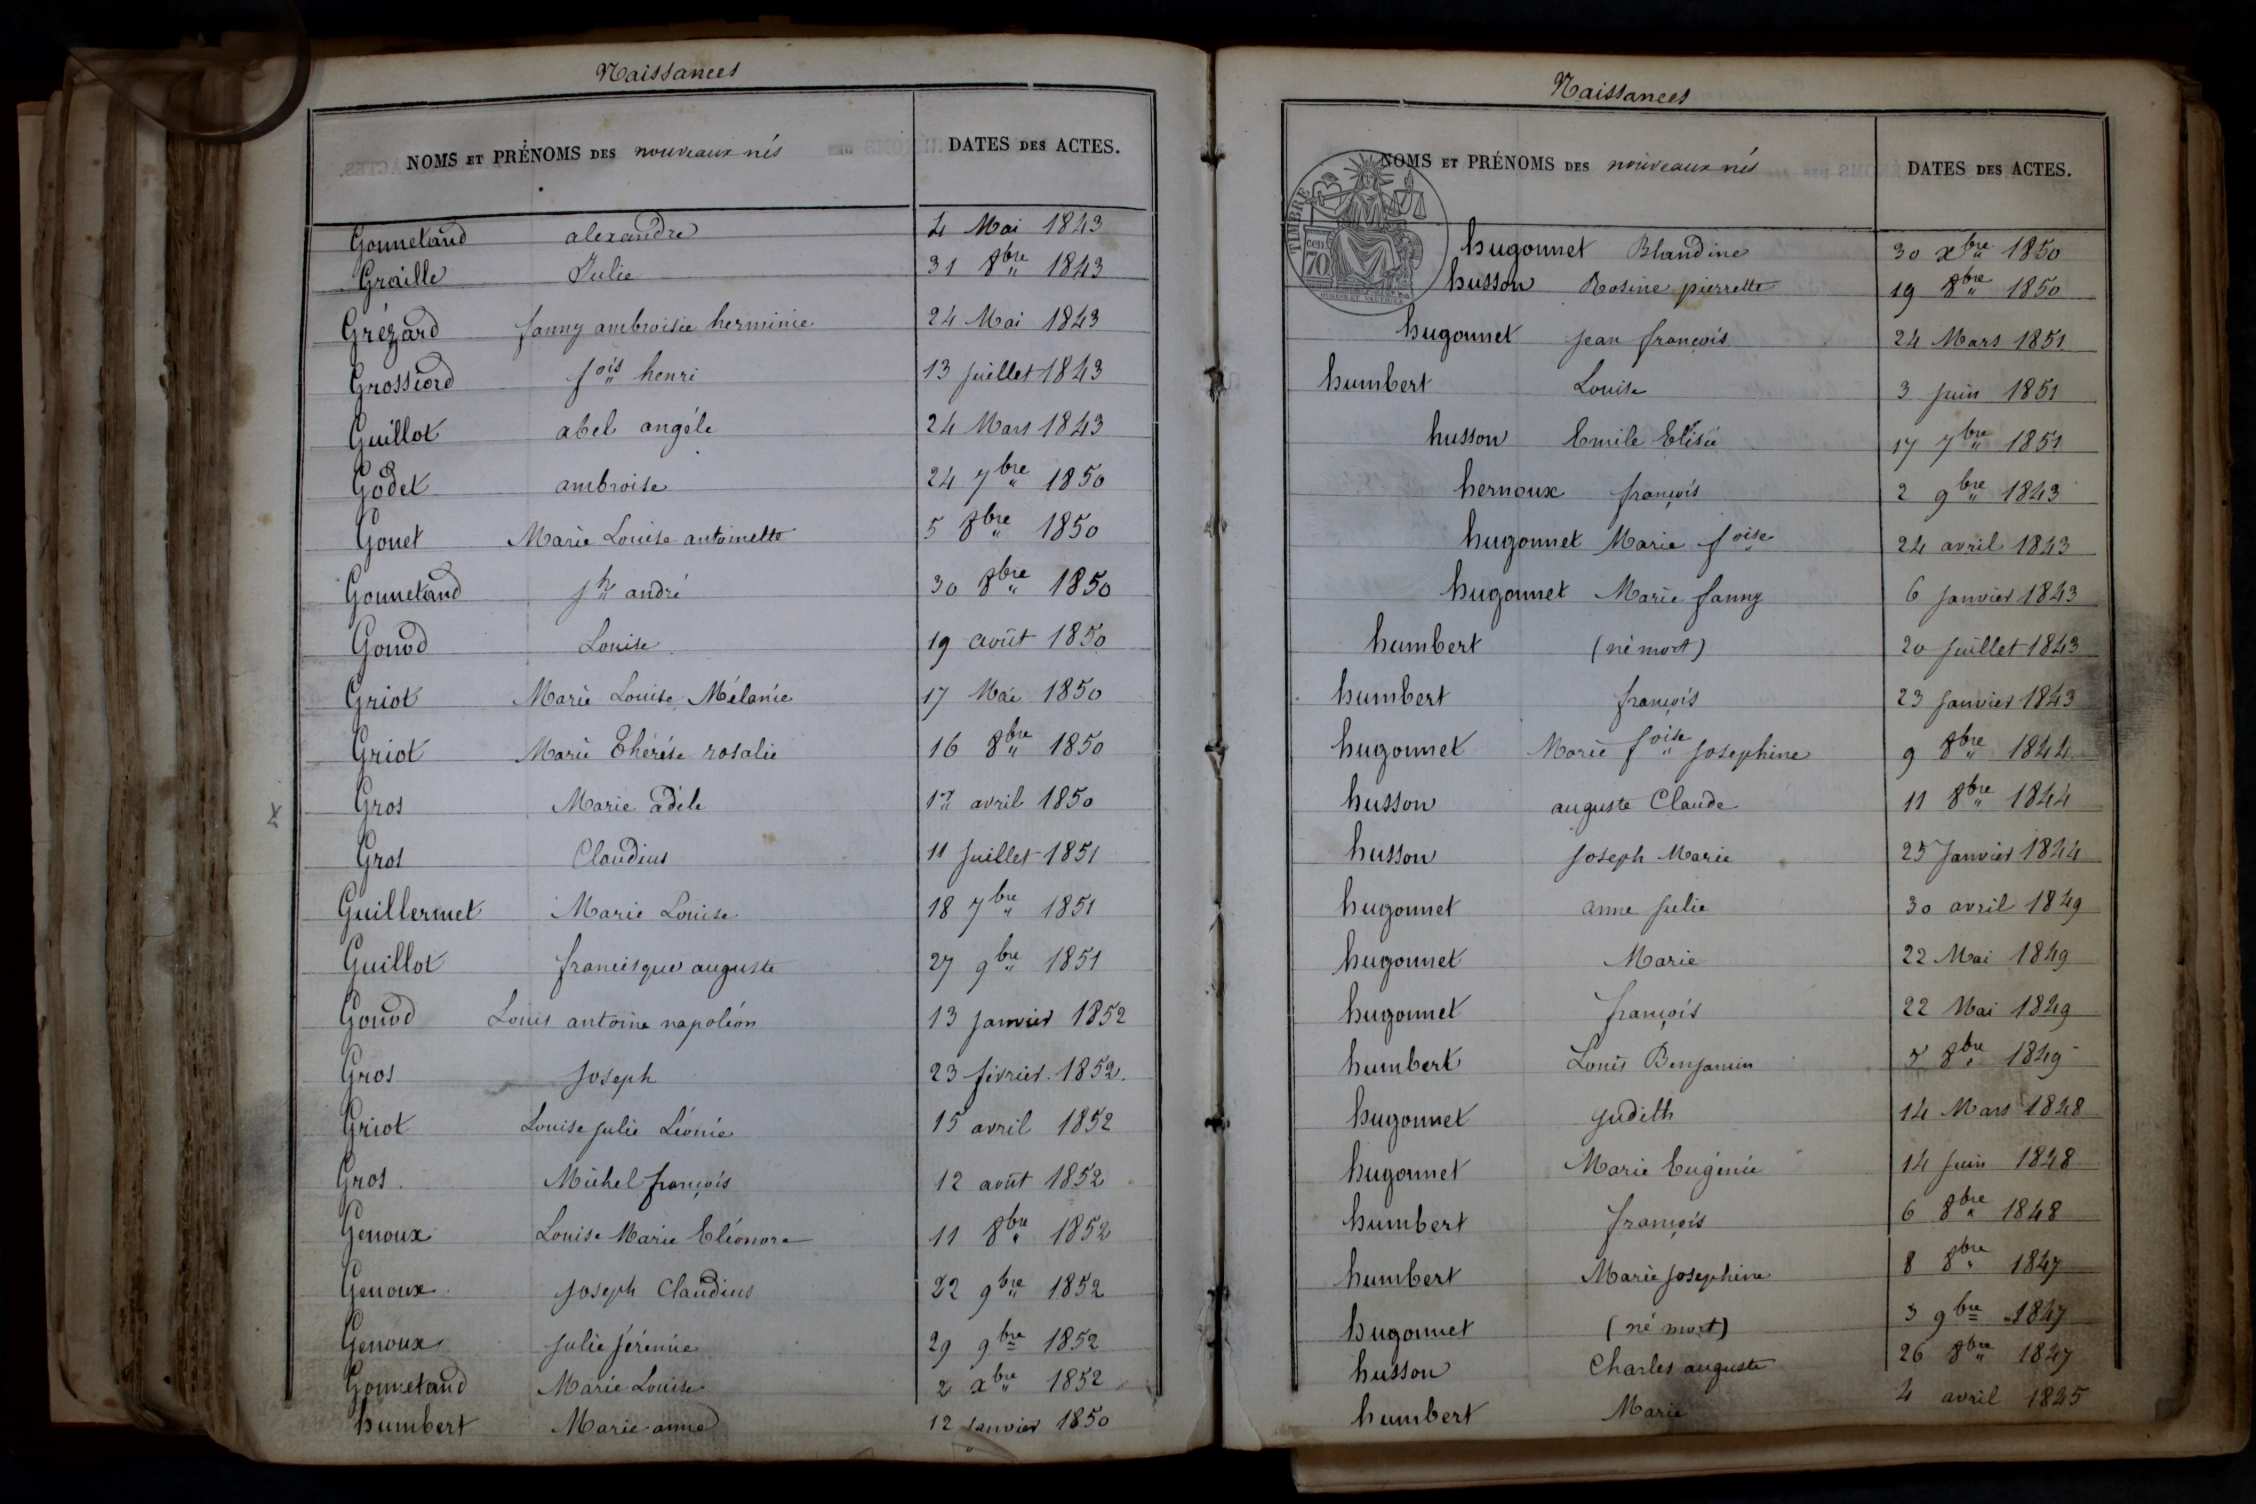 Naissances
NOMS ET PRÉNOMS DES nouveaux nés DATES DES ACTES.
Gonnetand alexandre 4 Mai 1843
Graille Julie 31 8bre 1843
Grézard fanny ambroisie herminie 24 Mai 1843
Grossiord fois henri 13 Juillet 1843
Guillot abel angèle 24 Mars 1843
Godet ambroise 24 7bre 1850
Gouet Marie Louise antoinette 5 8bre 1850
Gonnetand jh andré 30 8bre 1850
Gouod Louise 19 août 1850
Griot Marie Louise Mélanie 17 Mai 1850
Griot Marie Thérèse rosalie 16 8bre 1850
Gros Marie adèle avril 1850
Gros Claudius 11 Juillet 1851
Guillermet Marie Louise 18 7bre 1851
Guillot francisque auguste 27 9bre 1851
Gouod Louis antoine napoléon 13 janvier 1852
Gros Joseph 23 février 1852
Griot Louise julie Léonie 15 avril 1852
Gros Michel françois 12 août 1852
Genoux Louise Marie Eléonore 11 8bre 1852
Genoux Joseph Claudius 22 9bre 1852
Genoux Julie Jérémie 29 9bre 1852
Gonnetand Marie Louise 2 xbre 1852
humbert Marie anne 12 Janvier 1850
Naissances
NOMS ET PRÉNOMS DES nouveaux nés DATES DES ACTES.
TIMBRE
cent. 70
hugonnet Blandine 30 xbre 1850
husson Rosine pierrette 19 8bre 1850
hugonnet Jean françois 24 Mars 1851
humbert Louise 3 Juin 1851
husson Emile Elisée 17 7bre 1851
hernoux françois 2 9bre 1843
hugonnet Marie foise 24 avril 1843
hugonnet Marie fanny 6 Janvier 1843
humbert (né mort) 20 Juillet 1843
humbert françois 23 Janvier 1843
hugonnet Marie foise Josephine 9 8bre 1844
husson auguste Claude 11 8bre 1844
husson Joseph Marie 25 Janvier 1844
hugonnet anne Julie 30 avril 1849
hugonnet Marie 22 Mai 1849
hugonnet françois 22 Mai 1849
humbert Louis Benjamin 8bre 1849
hugonnet Judith 14 Mars 1848
hugonnet Marie Eugénie 14 Juin 1848
humbert françois 6 8bre 1848
humbert Marie Josephine 8 8bre 1847
hugonnet (né mort) 3 9bre 1847
husson Charles auguste 26 8bre 1847
humbert Marie 4 avril 1845